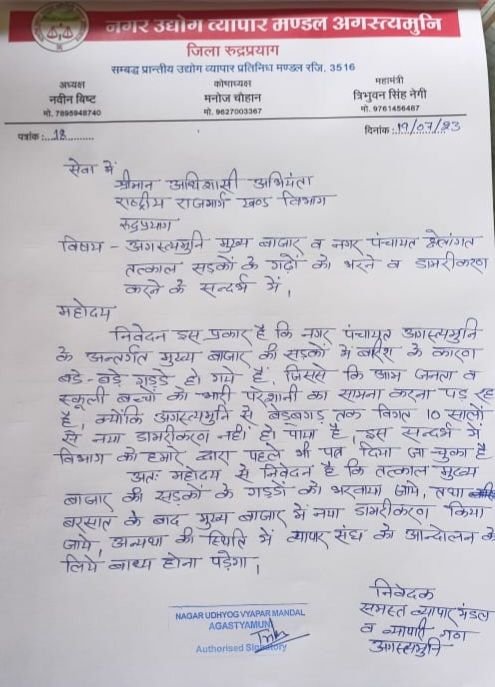 नगर उद्योग व्यापार मण्डल अगस्त्यमुनि
जिला रुद्रप्रयाग
सम्बद्ध प्रान्तीय उद्योग व्यापार प्रतिनिध मण्डल रजि. 3516
अध्यक्ष
नवीन बिष्ट
मो. 7895948740
कोषाध्यक्ष
मनोज चौहान
मो. 9627003367
महामंत्री
त्रिभुवन सिंह नेगी
मो. 9761456487
पत्रांक :.. 18 ..........
दिनांक :. 19/07/23
सेवा में
श्रीमान अधिशासी अभियंता
राष्ट्रीय राजमार्ग खण्ड विभाग
रुद्रप्रयाग
विषय - अगस्त्यमुनि मुख्य बाजार व नगर पंचायत क्षेत्रांगत
तत्काल सड़कों के गढ़ों को भरने व डामरीकरण
करने के सन्दर्भ में।
महोदय
निवेदन इस प्रकार है कि नगर पंचायत अगस्त्यमुनि
के अन्तर्गत मुख्य बाजार की सड़कों में बारिश के कारण
बडे-बडे गड्डे हो गये हैं, जिससे कि आम जनता व
स्कूली बच्चों को भारी परेशानी का सामना करना पड़ रह
है, क्योंकि अगस्त्यमुनि से बेडूबगड़ तक विगत 10 सालों
से नया डामरीकरण नहीं हो पाया है, इस सन्दर्भ में
विभाग को हमारे द्वारा पहले भी पत्र दिया जा चुका है
अतः महोदय से निवेदन है कि तत्काल मुख्य
बाजार की सड़कों के गडडों को भरवाया जाये, तथा
बरसात के बाद मुख्य बाजार में नया डामरीकरण किया
जाये, अन्यथा की स्थिति में व्यापर संघ को आन्दोलन के
लिये बाध्य होना पड़ेगा।
निवेदक
समस्त व्यापार मंडल
व व्यापारी गण
अगस्त्यमुनि
NAGAR UDHYOG VYAPAR MANDAL
AGASTYAMUNI
Authorised Signatory